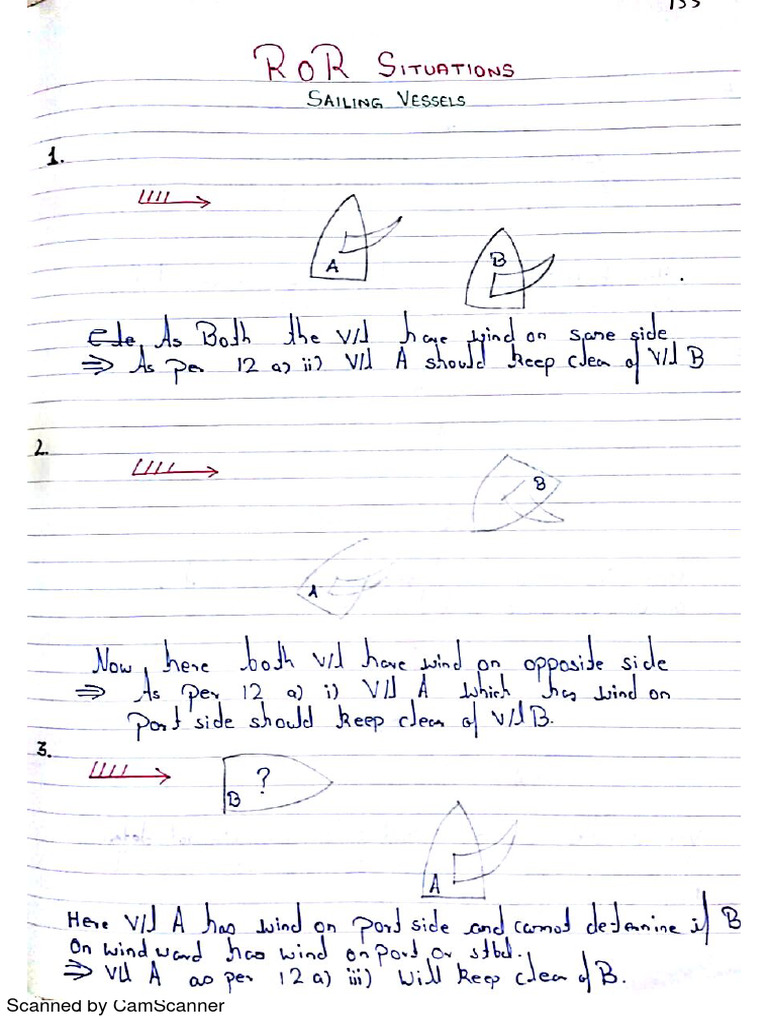 133
RoR SITUATIONS
SAILING VESSELS
1.
A
B
As Both the V/l have wind on same side
⇒ As per 12 a) ii) V/l A should keep clear of V/l B
2.
B
A
Now, here both V/l have wind on opposite side
⇒ As per 12 a) i) V/l A which has wind on
port side should keep clear of V/l B.
3.
B ?
A
Here V/l A has wind on port side and cannot determine if B
on windward has wind on port or stbd.
⇒ V/l A as per 12 a) iii) will keep clear of B.
Scanned by CamScanner